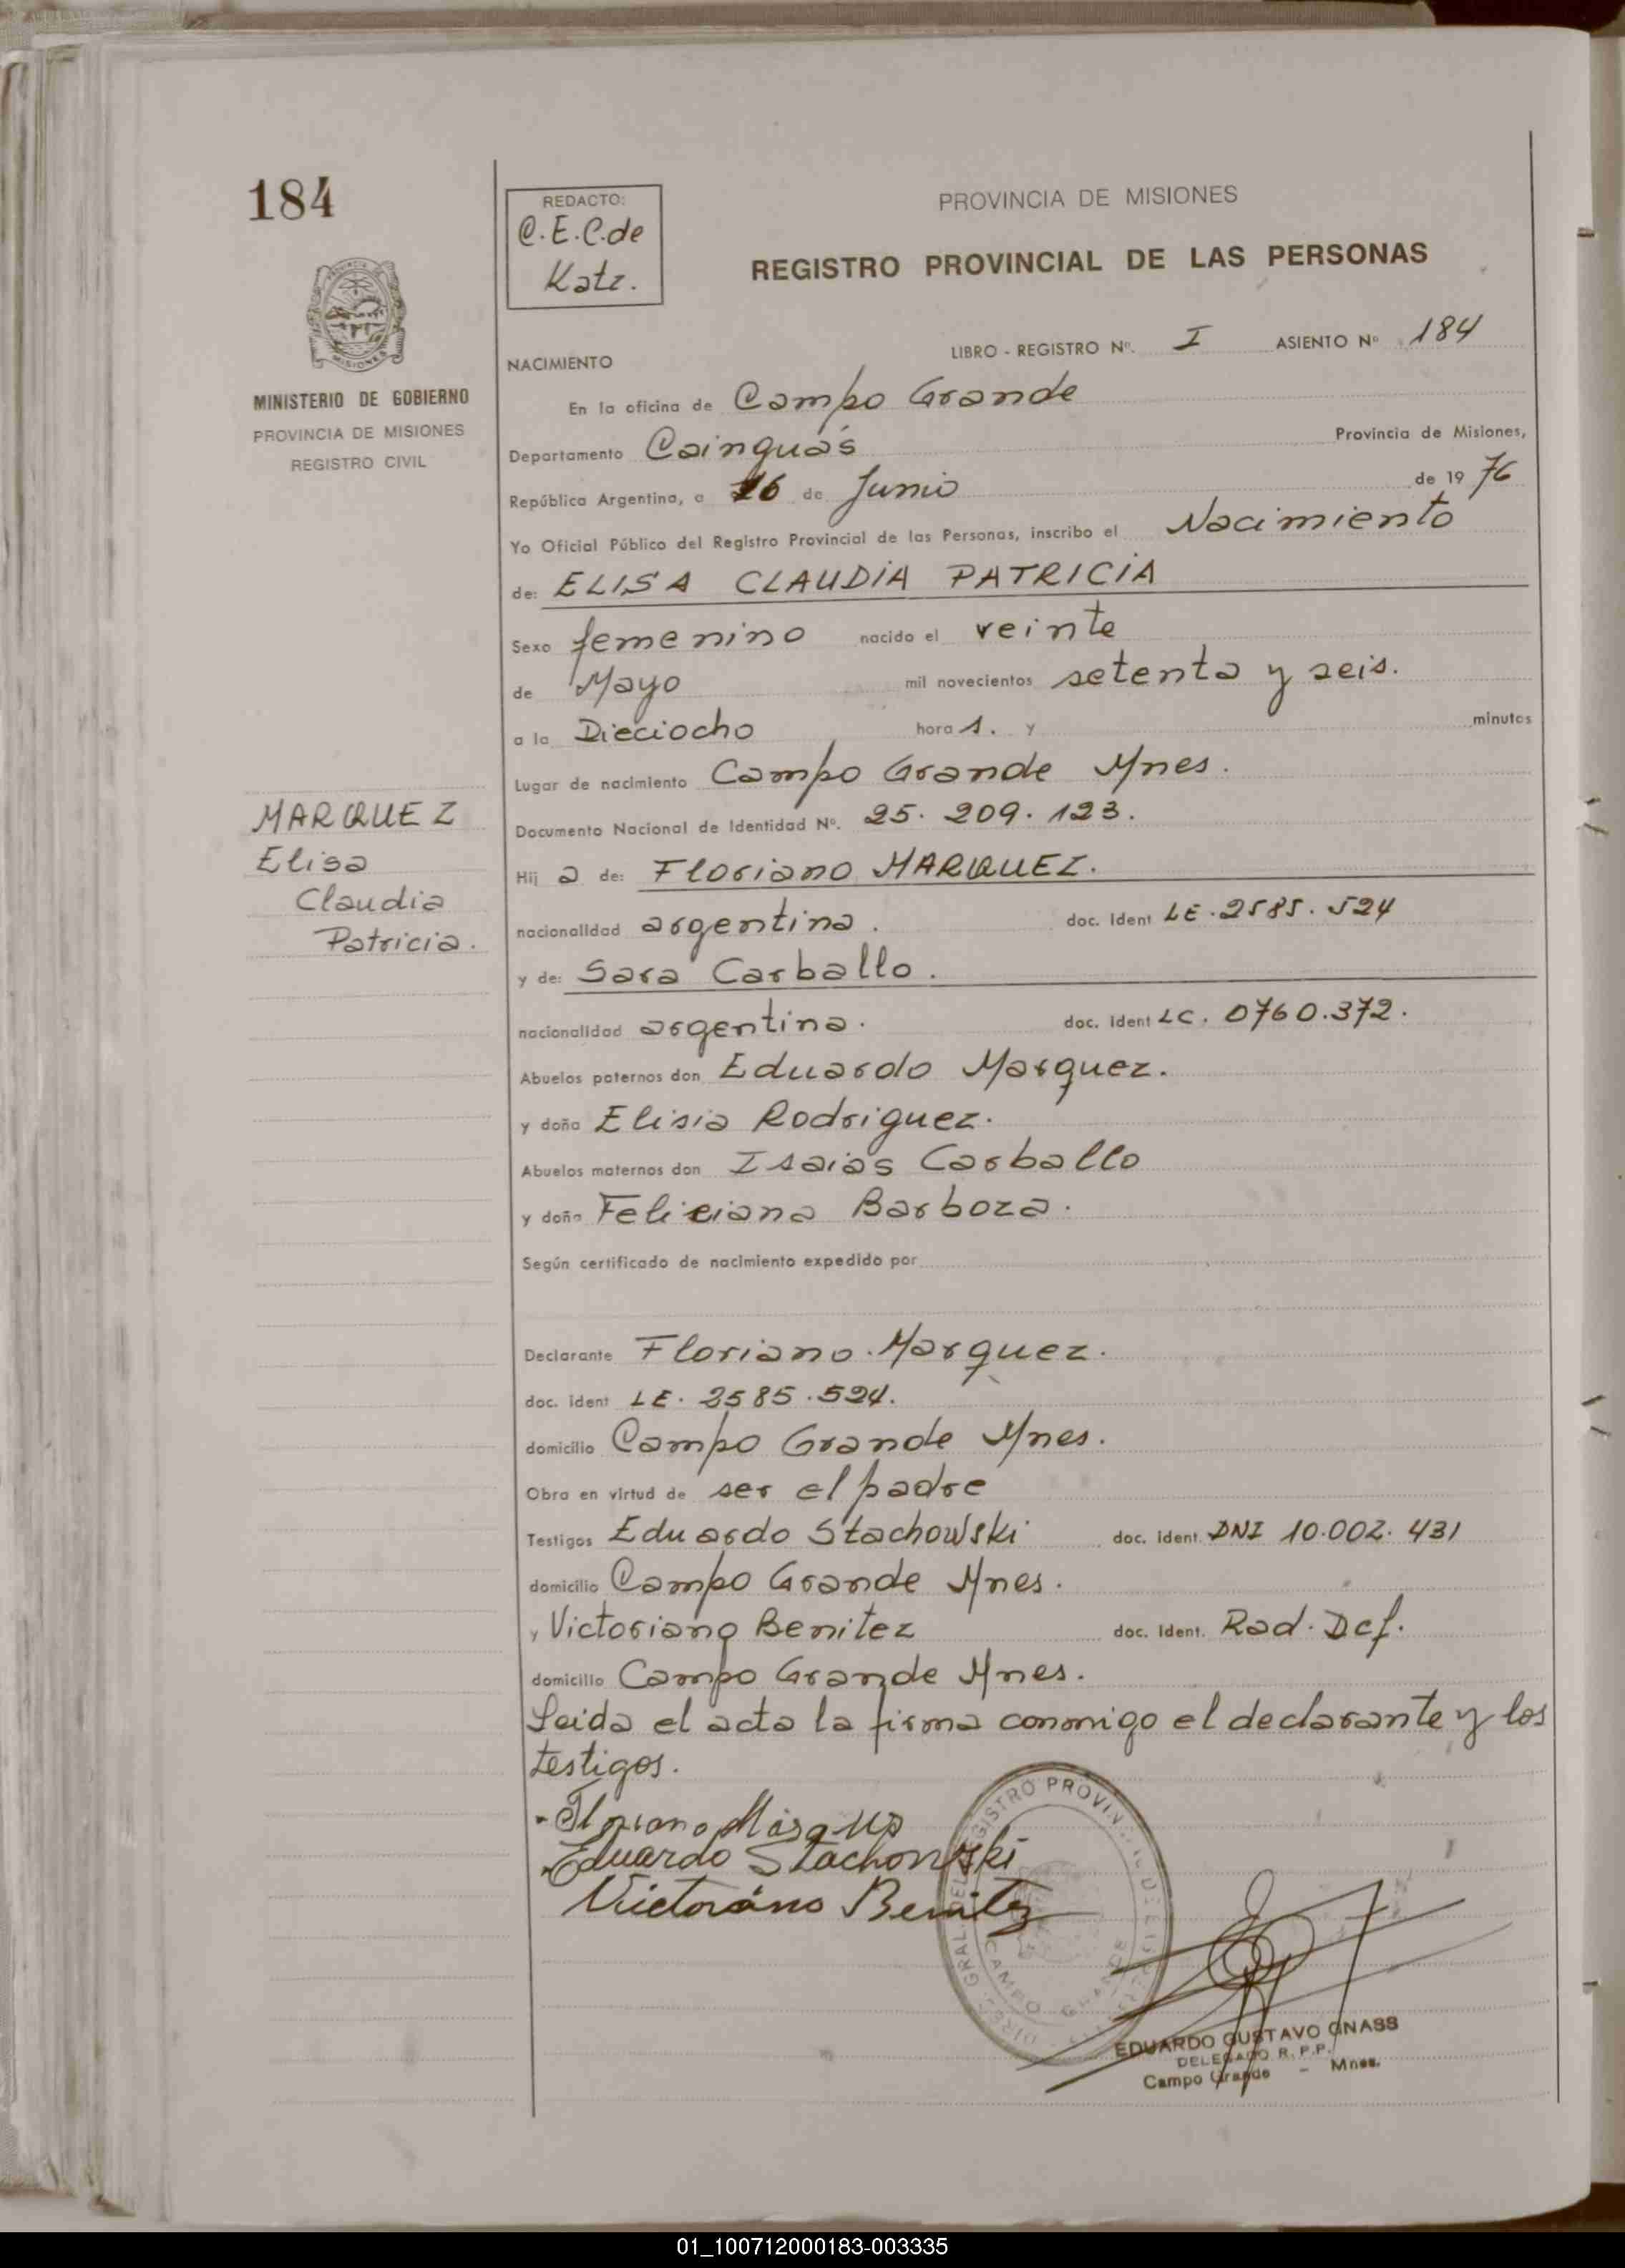 184
REDACTO:
C.E.C. de
Katz.
PROVINCIA DE MISIONES
REGISTRO PROVINCIAL DE LAS PERSONAS
MINISTERIO DE GOBIERNO
PROVINCIA DE MISIONES
REGISTRO CIVIL
NACIMIENTO
LIBRO - REGISTRO Nº. I ASIENTO Nº 184
En la oficina de Campo Grande
Departamento Cainguás Provincia de Misiones,
República Argentina, a 16 de Junio de 19 76
Yo Oficial Público del Registro Provincial de las Personas, inscribo el Nacimiento
de: ELISA CLAUDIA PATRICIA
Sexo femenino nacido el veinte
de Mayo mil novecientos setenta y seis.
a la Dieciocho hora s. y minutos
Lugar de nacimiento Campo Grande Mnes.
Documento Nacional de Identidad Nº. 25.209.123.
MARQUEZ
Elisa
Claudia
Patricia.
Hij a de: Floriano MARQUEZ.
nacionalidad argentina. doc. Ident LE. 2585.524
y de: Sara Carballo.
nacionalidad argentina. doc. Ident LC. 0760.372.
Abuelos paternos don Eduardo Marquez.
y doña Elisia Rodriguez.
Abuelos maternos don Isaias Carballo
y doña Feliciana Barboza.
Según certificado de nacimiento expedido por
Declarante Floriano Marquez.
doc. ident LE. 2585.524.
domicilio Campo Grande Mnes.
Obra en virtud de ser el padre
Testigos Eduardo Stachowski doc. ident. DNI 10.002.431
domicilio Campo Grande Mnes.
y Victoriano Benitez doc. Ident. Rad. Def.
domicilio Campo Grande Mnes.
Leida el acta la firma conmigo el declarante y los
testigos.
Eduardo Stachowski
Victoriano Benitez
CAMPO GRANDE
EDUARDO GUSTAVO GNASS
DELEGADO R. P. P.
Campo Grande - Mnes.
01_100712000183-003335